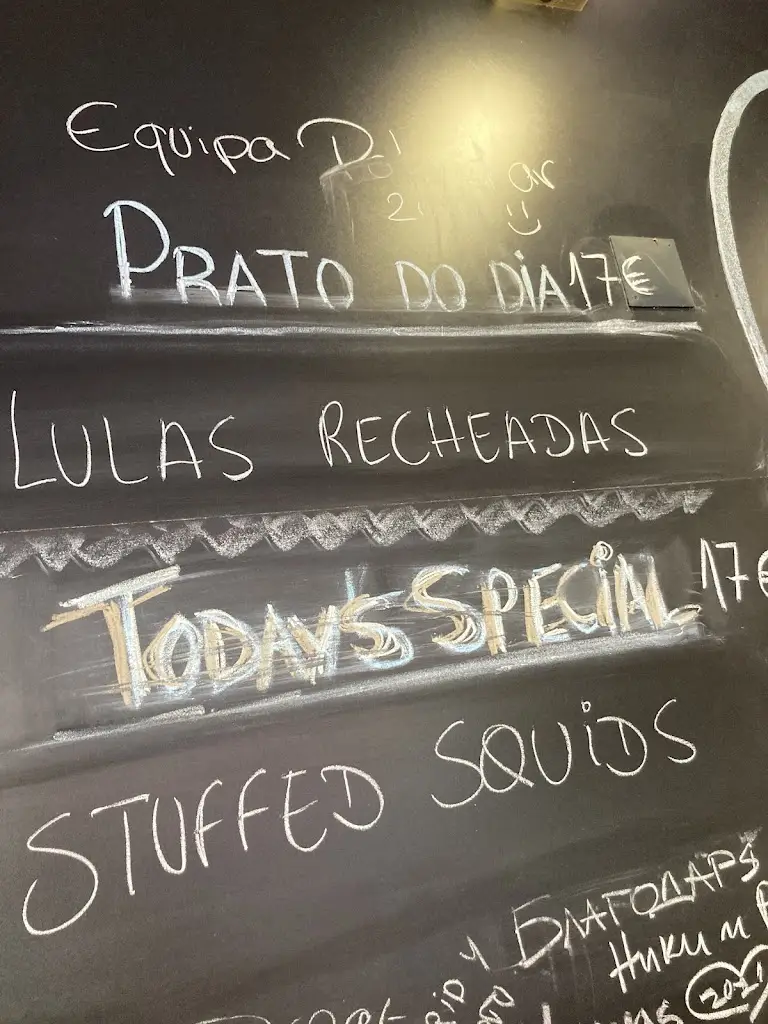 Equipa
ar
PRATO DO DiA 17€
LULAS RECHEADAS
TODAY'S SPECiAL 17€
STUFFED SQUiDS
БЛАГОДАРЯ
Ники и
2021